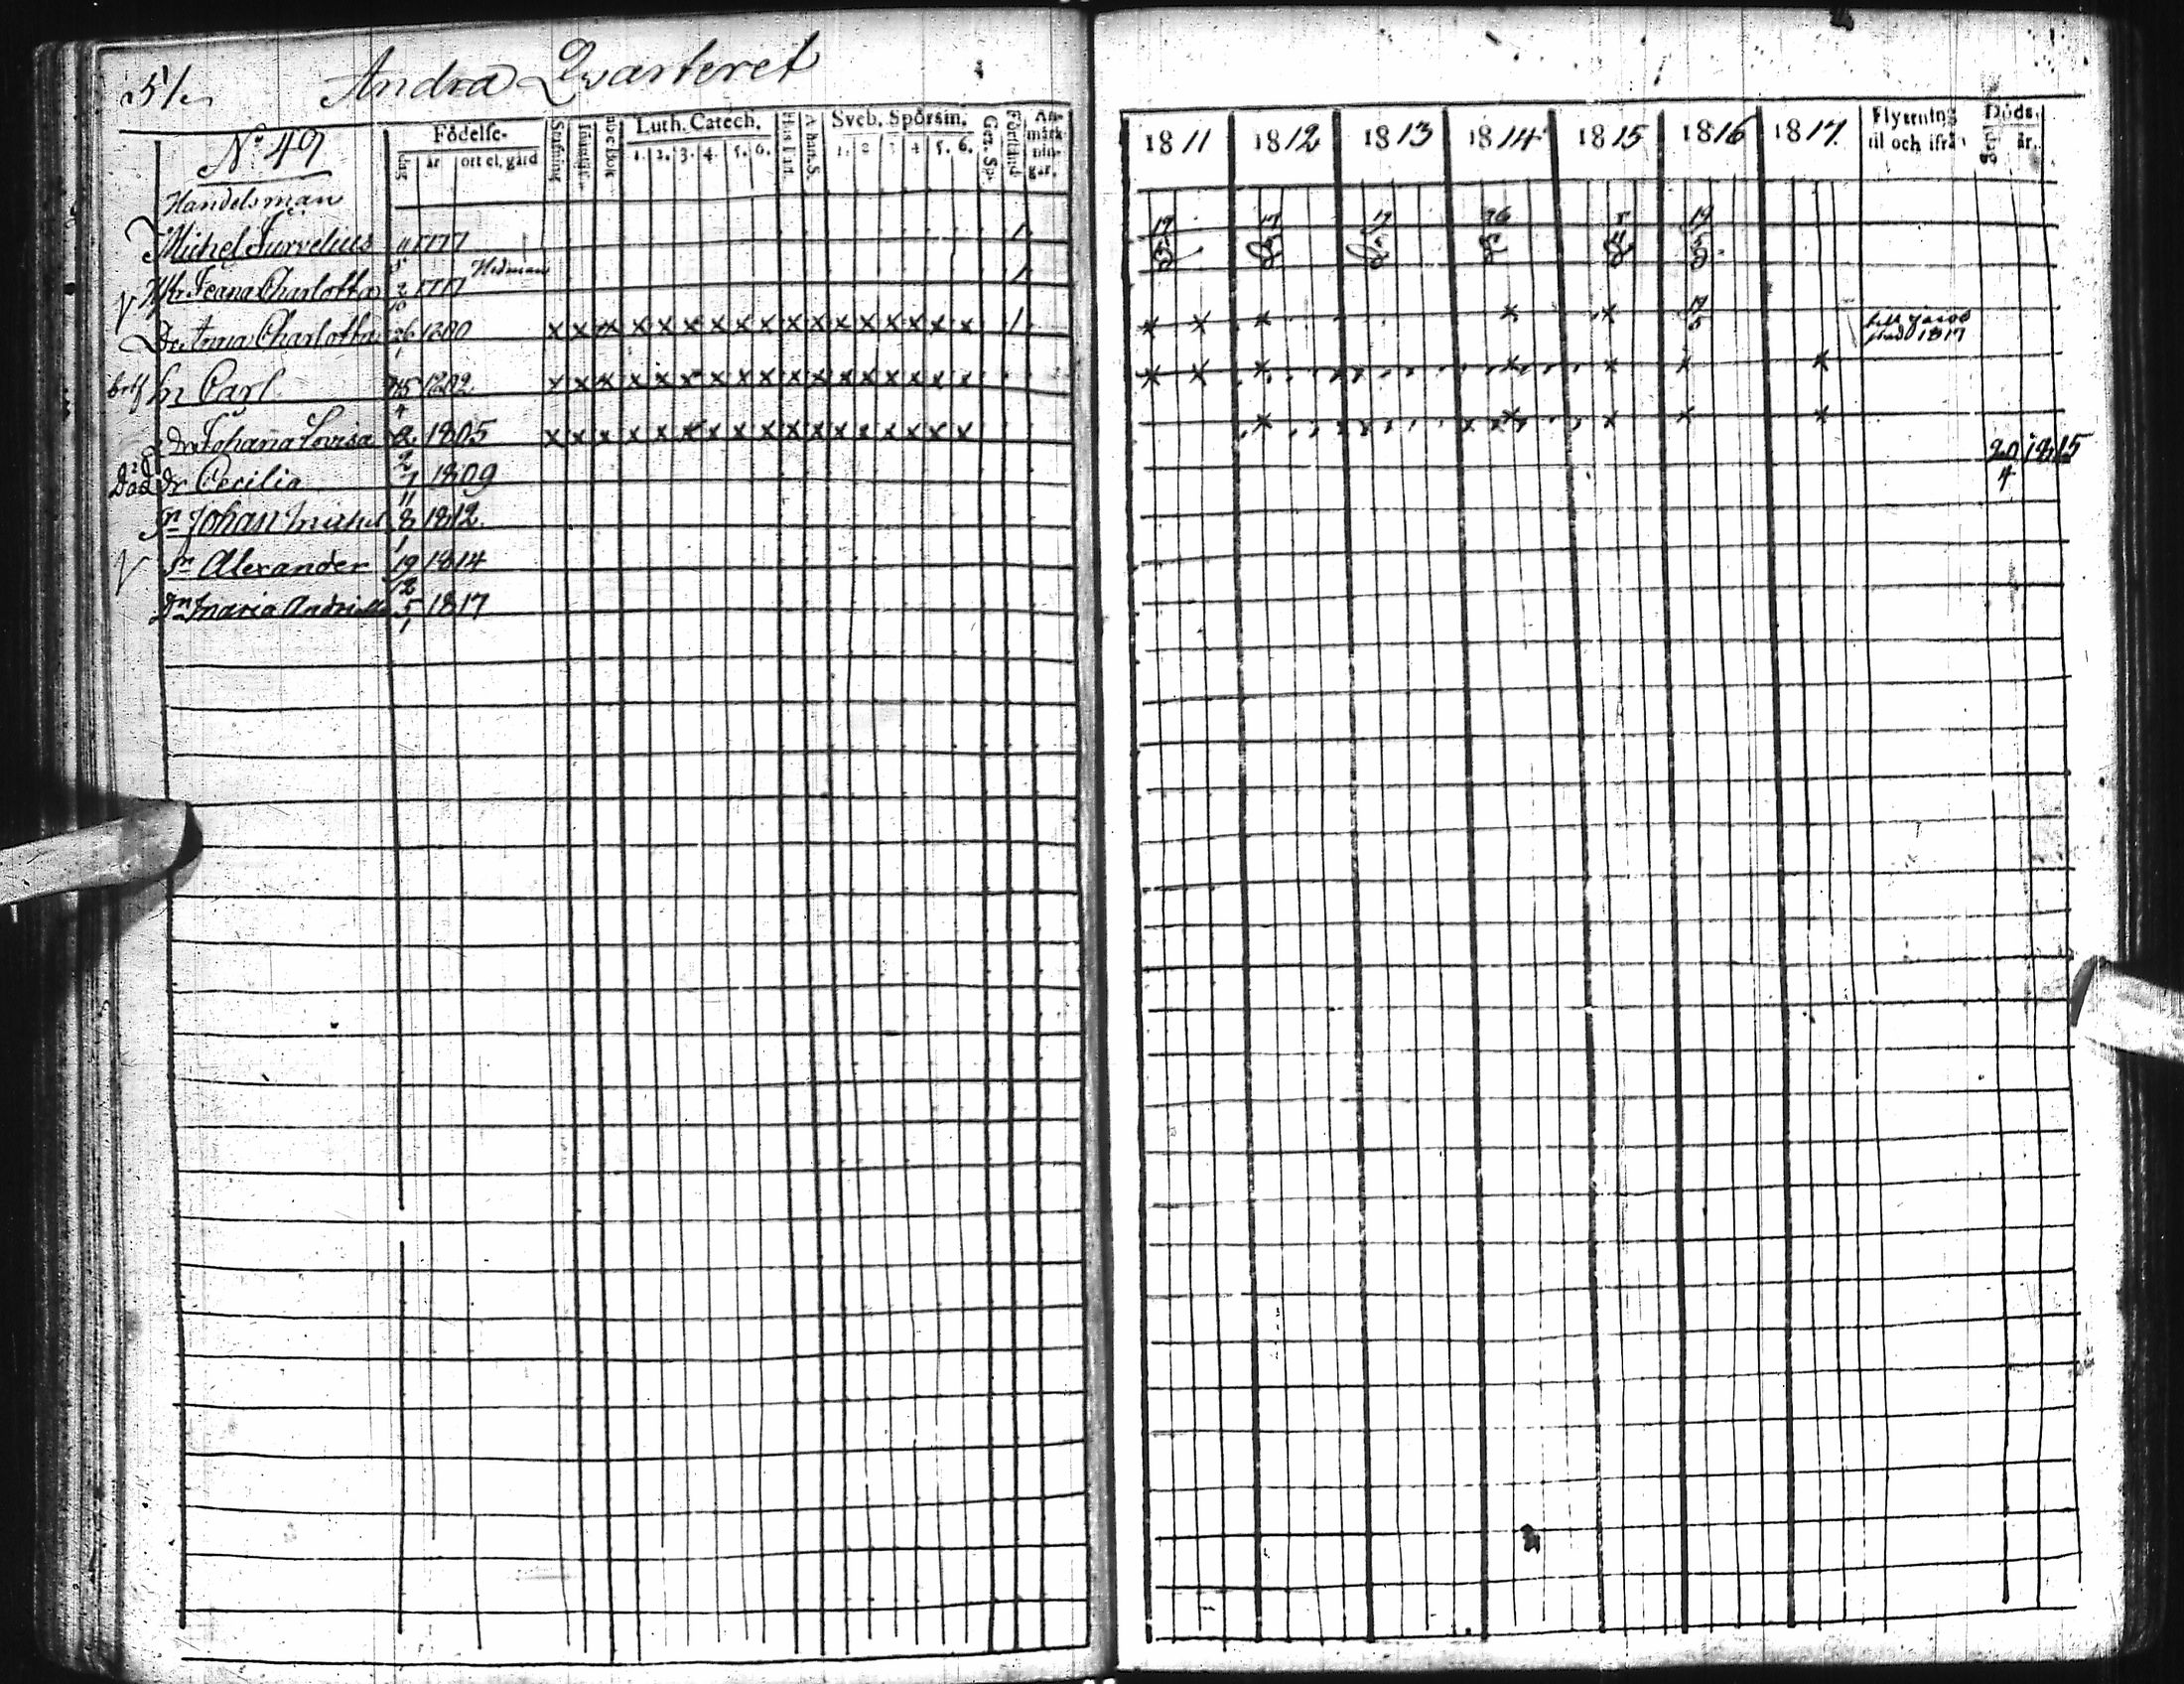 51
Andra Qvarteret
No 49
Födelse-
dag
år
ort el. gård
Luth. Catech.
1. 2. 3. 4. 5. 6.
Hus Tafl.
Athan. S.
Sveb. Spörsm.
1. 2 3 4 5. 6.
Ger. Sp.
Förstånd
An-
märk-
nin-
gar.
1811 1812 1813 1814 1815 1816 1817.
Flyttning
til och ifrån
Döds-
dag
år.
Handelsman
Michel 11/5 1777 1
17/5 17/5 17/5 19/5
Hu Jeana Charlotta 2/10 1777 Hedman 1
Dr Anna Charlotta 26/1 1800 x x x x x x x x x x x x x x x x x 1
x x x x x 17/5 till Jacob
stad 1817
Sn Carl 15/4 1802 x x x x x x x x x x x x x x x x x
x x x x x x x
Dr Johana Lovisa 2/2 1805 x x x x x x x x x x x x x x x x x
x x x x x
Död Dr Cecilia 7/11 1809 20/4 1815
Sn Johan Michel 8/1 1812
Sn Alexander 19/12 1814
Dr Maria 5/1 1817